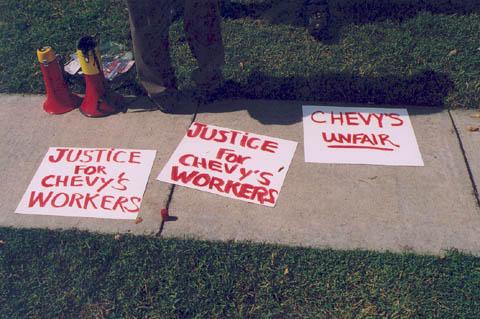 JUSTICE
FOR
CHEVY'S
WORKERS
JUSTICE
FOR
CHEVY'S
WORKERS
CHEVY'S
UNFAIR